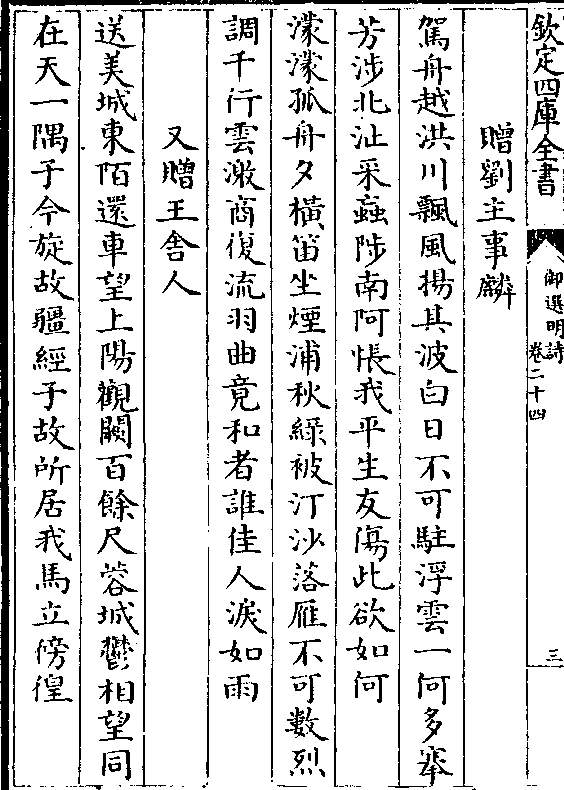 欽定四庫全書
御選明詩
卷二十四
三
贈劉主事麟
駕舟越洪川飄風揚其波白日不可駐浮雲一何多搴
芳涉北沚采蝱陟南阿悵我平生友傷此欲如何
濛濛孤舟夕橫笛坐煙浦秋綠被汀沙落雁不可數烈
調千行雲激商復流羽曲竟和者誰佳人淚如雨
又贈王舍人
送美城東陌還車望上陽觀闕百餘尺蓉城鬱相望同
在天一隅子今旋故疆經子故所居我馬立傍徨